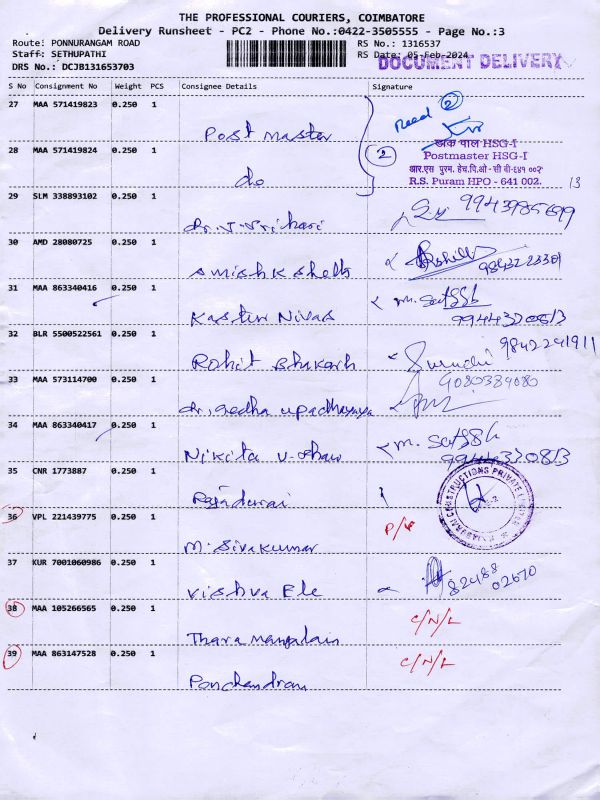 THE PROFESSIONAL COURIERS, COIMBATORE
Delivery Runsheet - PC2 - Phone No.:0422-3505555 - Page No.:3
Route: PONNURANGAM ROAD RS No.: 1316537
Staff: SETHUPATHI RS Date: 05-Feb-2024
DRS No.: DCJB131653703 DOCUMENT DELIVERY
S No Consignment No Weight PCS Consignee Details Signature
27 MAA 571419823 0.250 1
Post Master
Recd 2
28 MAA 571419824 0.250 1
do
2
डाक पाल HSG-I
Postmaster HSG-I
आर.एस पुरम. हेच.पि.ओ - सी बी-६४१ ००२
R.S. Puram HPO - 641 002.
13
29 SLM 338893102 0.250 1
Dr. V. Srihari
30 AMD 28080725 0.250 1
Amish K Sheth
31 MAA 863340416 0.250 1
Kastur Nivas
9944320813
32 BLR 5500522561 0.250 1
Rohit Bhakarh
9842241911
33 MAA 573114700 0.250 1
Dr. Sedha upadhyaya
9080389080
34 MAA 863340417 0.250 1
Nikita V. Shaw
9944320813
35 CNR 1773887 0.250 1
Rajadurai
CONSTRUCTIONS PRIVATE
36 VPL 221439775 0.250 1
M. Sivakumar
37 KUR 7001060986 0.250 1
Vishva Ele
82488
02670
38 MAA 105266565 0.250 1
Thara Mangalam
C/N/L
39 MAA 863147528 0.250 1
Ponchandran
C/N/L